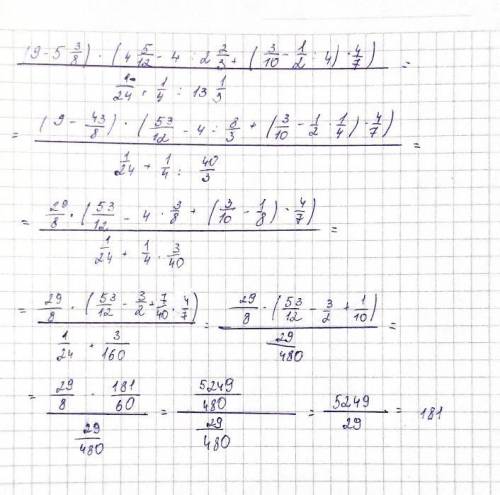 (9-5 3/8) · (4 5/12 - 4 : 2 2/3 + (3/10 - 1/2 : 4) · 4/7) / (1/24 + 1/4 : 13 1/3) =
= (9 - 43/8) · (53/12 - 4 : 8/3 + (3/10 - 1/2 · 1/4) · 4/7) / (1/24 + 1/4 : 40/3) =
= 29/8 · (53/12 - 4 · 3/8 + (3/10 - 1/8) · 4/7) / (1/24 + 1/4 · 3/40) =
= 29/8 · (53/12 - 3/2 + 7/40 · 4/7) / (1/24 + 3/160) = 29/8 · (53/12 - 3/2 + 1/10) / (29/480) =
= 29/8 · 181/60 / (29/480) = 5249/480 / (29/480) = 5249/29 = 181